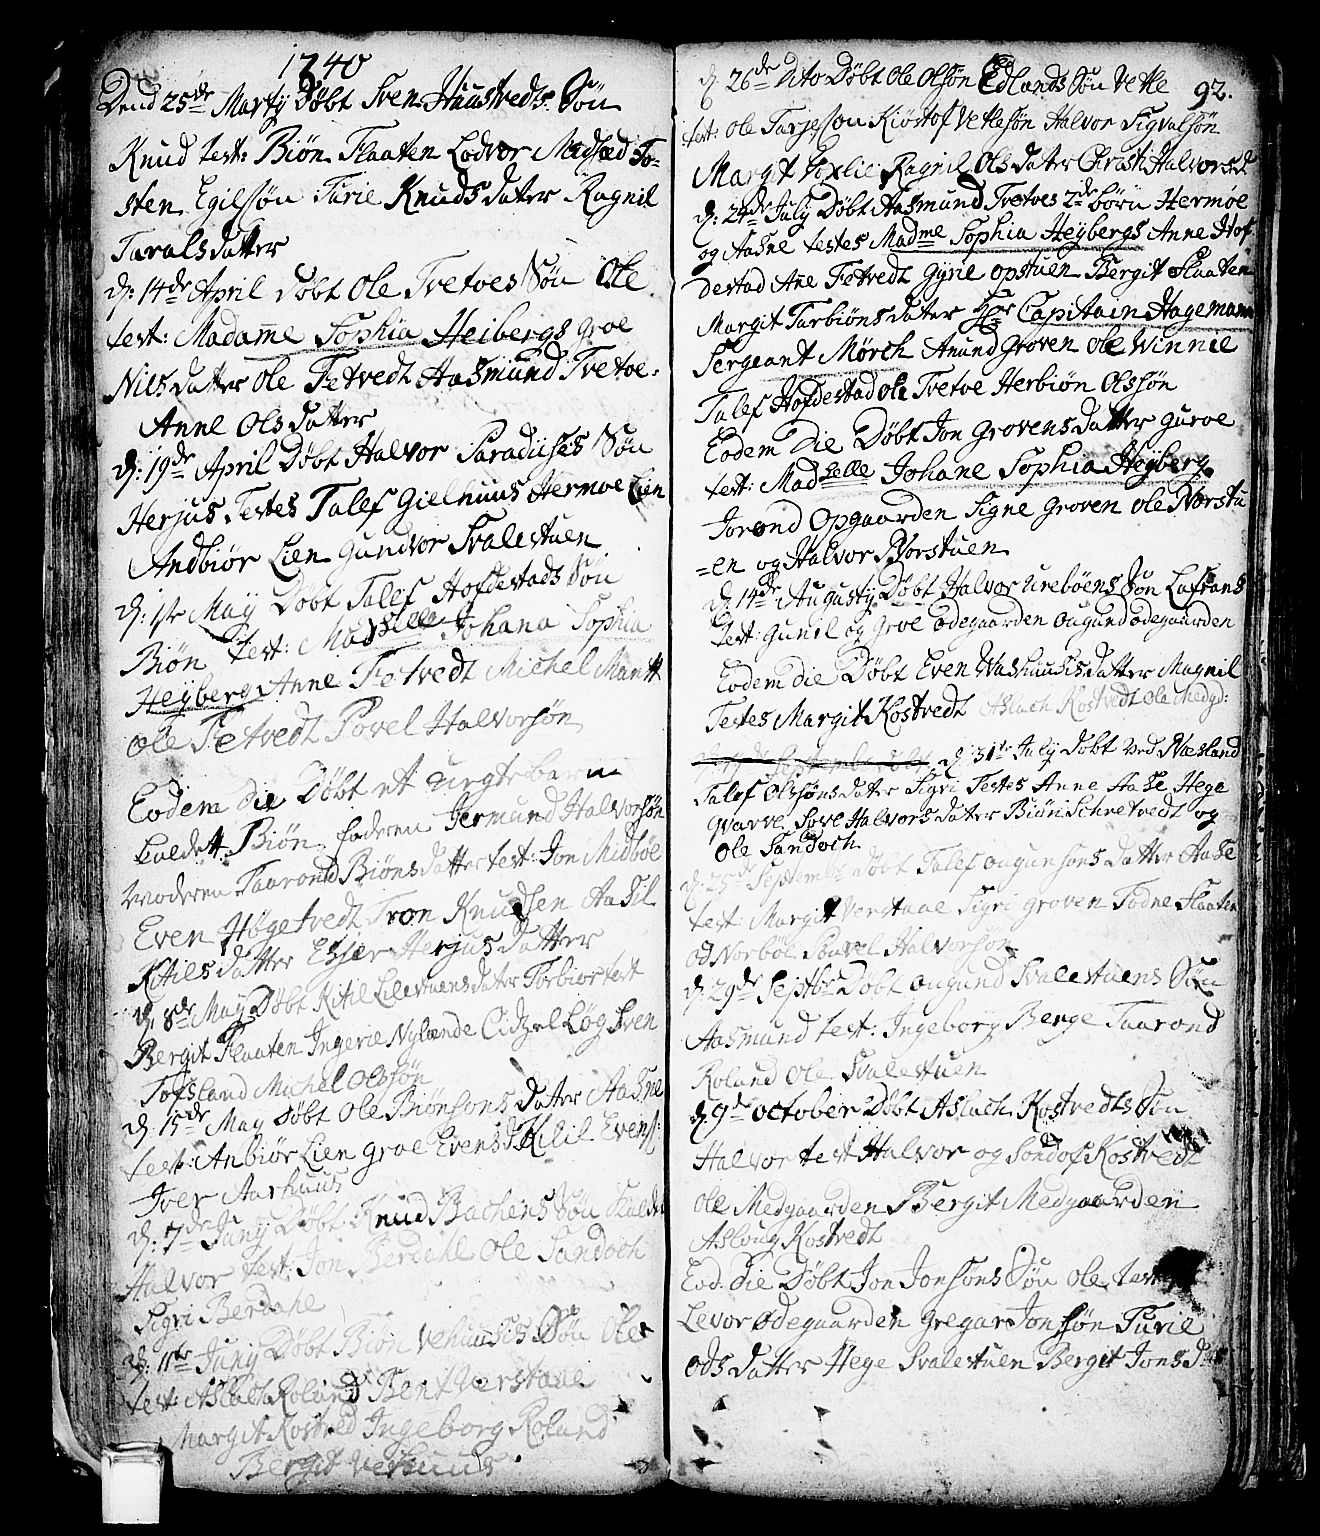 1740
Dend 25de Martÿ Döbt Sven Huustveds Sön
Knud test: Biön Flaaten Lodvor Midbøe To-
sten Egilsøn Turie Knuds datter Ragnil
Taralsdatter
d: 14de April Döbt Ole Tvetoes Sön Ole
test: Madame Sophia Heibergs Groe
Nilsdatter Ole Fetvedt Aasmund Tvetoe.
Anne Olsdatter
d: 19de April Döbt Halvor Paradiises Sön
Herjus Testes Talef Gielhuus Hermoe Lien
Andbiör Lien Gundvor Svalestuen
d: 1ste Maÿ Döbt Talef Hofdestads Sön
Biön test: Madselle Johana Sophia
Heÿberg Anne Fetvedt Michel
Ole Fetvedt Povel Halvorsøn
Eodem die Döbt et urgte barn
kaldet Biön faderen Germund Halvorsøn
moderen Taarond Biönsdatter test: Jon Midböe
Even Högetvedt Tron Knudsen Aasil
Kitilsdatter Herjusdatter
d. 8de May Döbt Kitil Lilestuens dater Torbior test
Bergit Flaaten Ingerie Nylænde Cidzel Løg Sven
Tofsland Michel Olssøn
d: 15de May döbt Ole Biönsons datter Aasne
test: Anbiör Lien Groe Evensd Kilil Evens:
Iver Aarhuus
d: 7de Junÿ Döbt Knud Bachens Sön
Halvor test: Jon Berdahl Ole Sandoch
Sigri Berdahl
d: 11te Junÿ Döbt Biön Vehuusis Sön Ole
test: Aslach Roland Bent Verstaae
Margit Kostved Ingeborg Roland
Bergit Vehuuus
d. 26de dito Döbt Ole Olsøn Edlands Sön Vetle 92.
test: Ole Tarjesson Kiöstof Vetlesøn Halvor Sigvalsøn
Margit Ragnil Olsdater Christi Halvorsd
d: 24de July Döbt Aasmund Tvetoes 2de börn Hermoe
og Aasne testes Madme Sophia Heÿbergs Anne Hof
destad Ane Fetvedt Gyrie Opstuen Bergit Flaaten
Margit Tarbiönsdater Hr Capitain Hagemann
Sergeant Mørch Anund Groven Ole Winnie
Talef Hofdestad Ole Tvetoe Herbiön Olssøn
Eodem Die Döbt Jon Grovens datter Guroe
test: Madselle Johane Sophia Heÿberg
Jorond Opgaarden Signe Groven Ole Norstu
=en og Halvor Norstuen
d: 14de Augustÿ Döbt Halvor Urebøens Sön Lafrans
test: Gunil og Groe Ödegaarden Ougund Ödegaarden
Eodem die Döbt Even Vashuusis datter Magnil
Testes Margit Kostvedt Aslach Kostvedt Ole Medg:
d: 31te July Döbt ved Næsland
Talef Olssøns dater Sigri Testes Anne Aase Hege
Qvarve Sove Halvors dater Biön Schretvedt og
Ole Sandoch
d. 25de Septembr Döbt Talef Ougunsøns datter Aase
test: Margit Verstaae Sigri Groven Todne Flaaten
Od Norböe Povel Halvorsøn
d: 29de Septbr Döbt Ougund Svalestuens Sön
Aasmund test: Ingeborg Berge Taarond
Roland Ole Svalestuen
d. 9de October Döbt Aslach Kostvedts Sön
Halvor test Halvor og Sondof Kostvedt
Ole Medgaarden Bergit Medgaarden
Asloug Kostvedt
Eod: die Döbt Jon Jonsøns Sön Ole test
Levor Ödegaarden Gregar Jonsøn Turie
Odsdatter Hege Svalestuen Bergit Jonsd